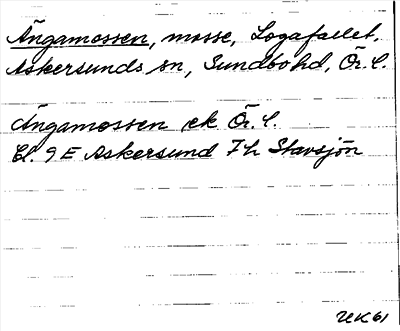 Ängamossen, mosse, Logafallet,
Askersunds sn, Sundbo hd, Ör. l.
Ängamossen ek Ör. l.
Bl. 9 E Askersund 7 h Stavsjön
UK 61